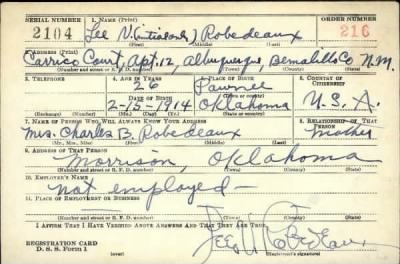 SERIAL NUMBER 1. NAME (Print) ORDER NUMBER
2104 Lee V. (initial only) Robedeaux 216
(First) (Middle) (Last)
2. ADDRESS (Print)
Carrico Court, Apt. 12, Albuquerque, Bernalillo Co. N.M.
(Number and street or R. F. D. number) (Town) (County) (State)
3. TELEPHONE 4. AGE IN YEARS 5. PLACE OF BIRTH 6. COUNTRY OF CITIZENSHIP
26 Pawnee
DATE OF BIRTH (Town or county)
2-15-1914 Oklahoma U.S.A.
(Exchange) (Number) (Mo.) (Day) (Yr.) (State or country)
7. NAME OF PERSON WHO WILL ALWAYS KNOW YOUR ADDRESS 8. RELATIONSHIP OF THAT PERSON
Mrs. Charles B. Robedeaux Mother
(Mr., Mrs., Miss) (First) (Middle) (Last)
9. ADDRESS OF THAT PERSON
Morrison, Oklahoma
(Number and street or R. F. D. number) (Town) (County) (State)
10. EMPLOYER'S NAME
not employed—
11. PLACE OF EMPLOYMENT OR BUSINESS
(Number and street or R. F. D. number) (Town) (County) (State)
I AFFIRM THAT I HAVE VERIFIED ABOVE ANSWERS AND THAT THEY ARE TRUE.
REGISTRATION CARD
D. S. S. Form 1 (over) Lee V Robedeaux
(Registrant's signature)